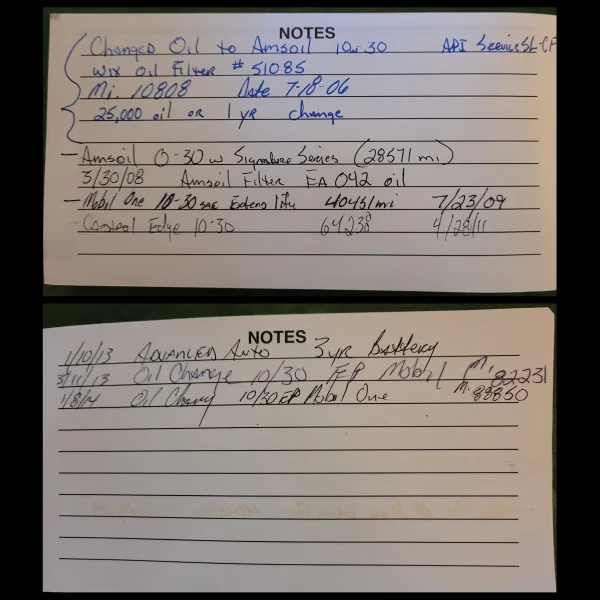 NOTES
Changed Oil to Amsoil 10w-30 API Service SL-CF
Wix Oil Filter # 51085
Mi. 10808 Date 7-18-06
25,000 oil or 1 yr change
- Amsoil 0-30 w Signature Series (28571 mi)
3/30/08 Amsoil Filter EA 042 oil
- Mobil One 10-30 SAE Extend life 40451 mi 7/23/09
- Castrol Edge 10-30 64238 4/28/11
NOTES
1/10/13 Advanced Auto 3 yr Battery
3/11/13 Oil Change 10/30 EP Mobil Mi. 82231
1/8/14 Oil Change 10/30 EP Mobil One Mi. 88850